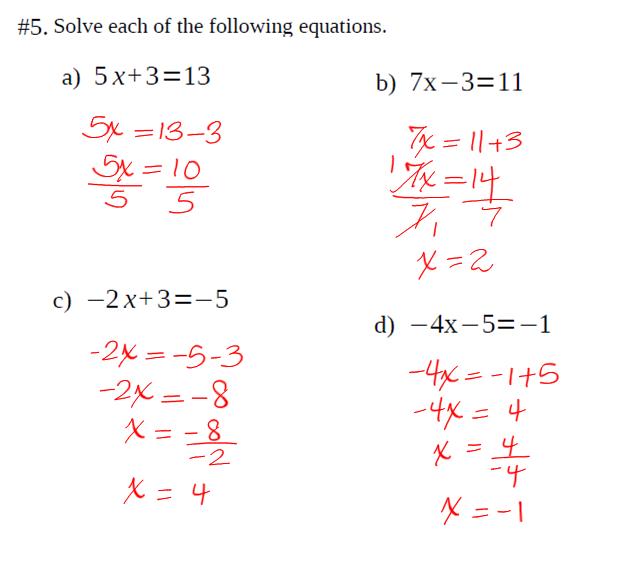 #5. Solve each of the following equations.
a) 5x+3=13
5x = 13-3
5x = 10
5 5
b) 7x-3=11
7x = 11+3
1 7x = 14
7 1 7
x = 2
c) -2x+3=-5
-2x = -5-3
-2x = -8
x = -8
-2
x = 4
d) -4x-5=-1
-4x = -1+5
-4x = 4
x = 4
-4
x = -1